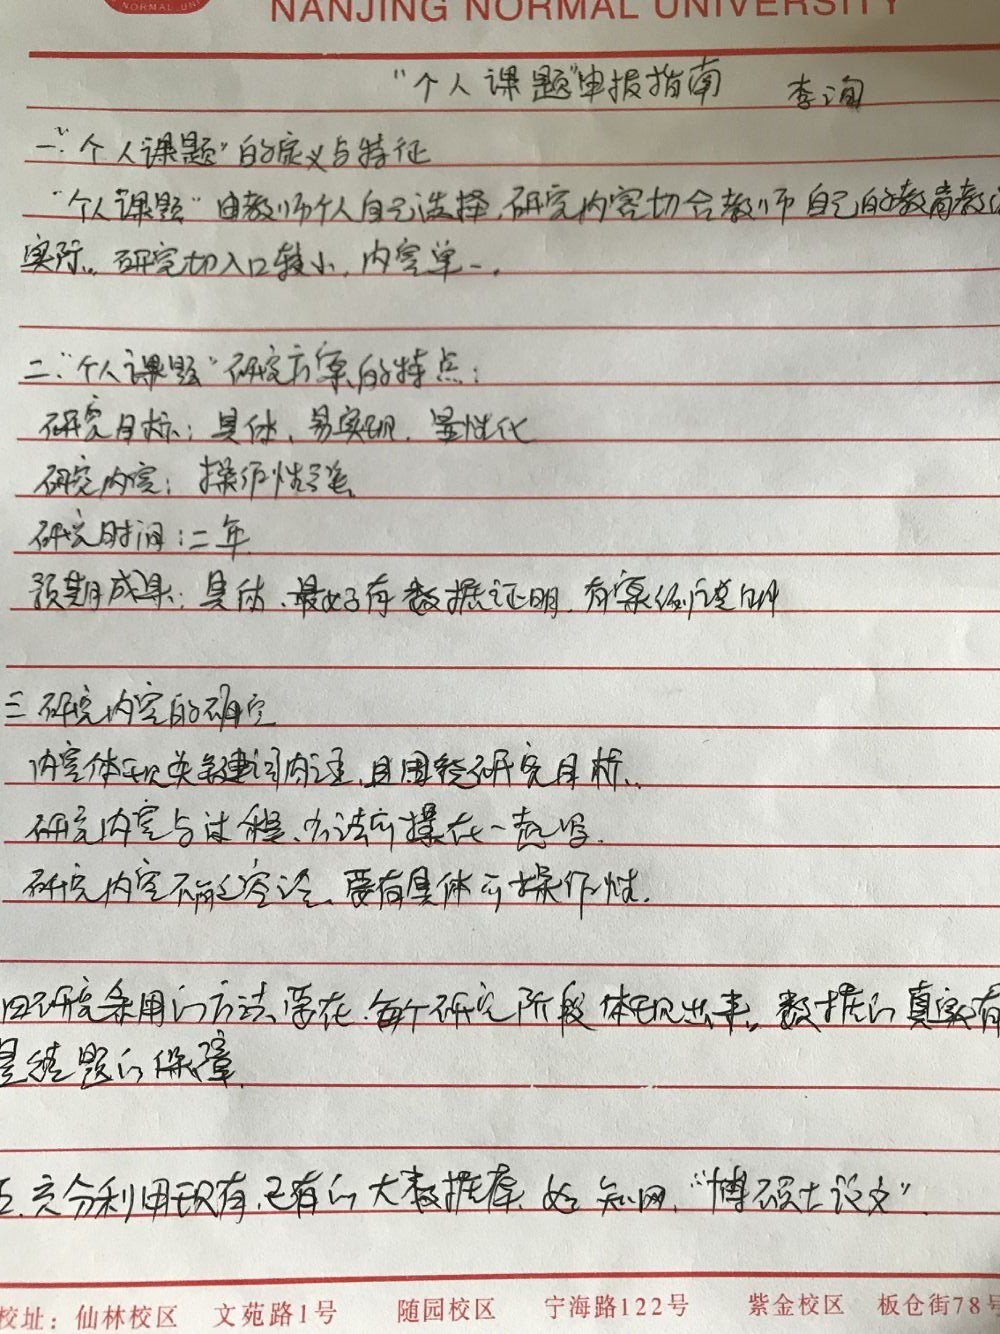 NORMAL UNI
NANJING NORMAL UNIVERSITY
“个人课题”申报指南 李洵
一.“个人课题”的定义与特征
“个人课题”由教师个人自己选择,研究内容切合教师自己的教育教
实际.研究切入口较小,内容单一.
二.“个人课题”研究方案的特点:
研究目标:具体、易实现、显性化
研究内容:操作性强
研究时间:二年
预期成果:具体、最好有数据证明,有案例说明
三 研究内容的确定
内容体现关键词内涵,且围绕研究目标.
研究内容与过程、方法可操在一起写.
研究内容不能空泛、要有具体可操作性.
四研究采用的方法、要在每个研究阶段体现出来,数据的真实有
是结题的保障.
五.充分利用现有,已有的大数据库,如知网,“博硕士论文”.
校址:仙林校区 文苑路1号 随园校区 宁海路122号 紫金校区 板仓街78号